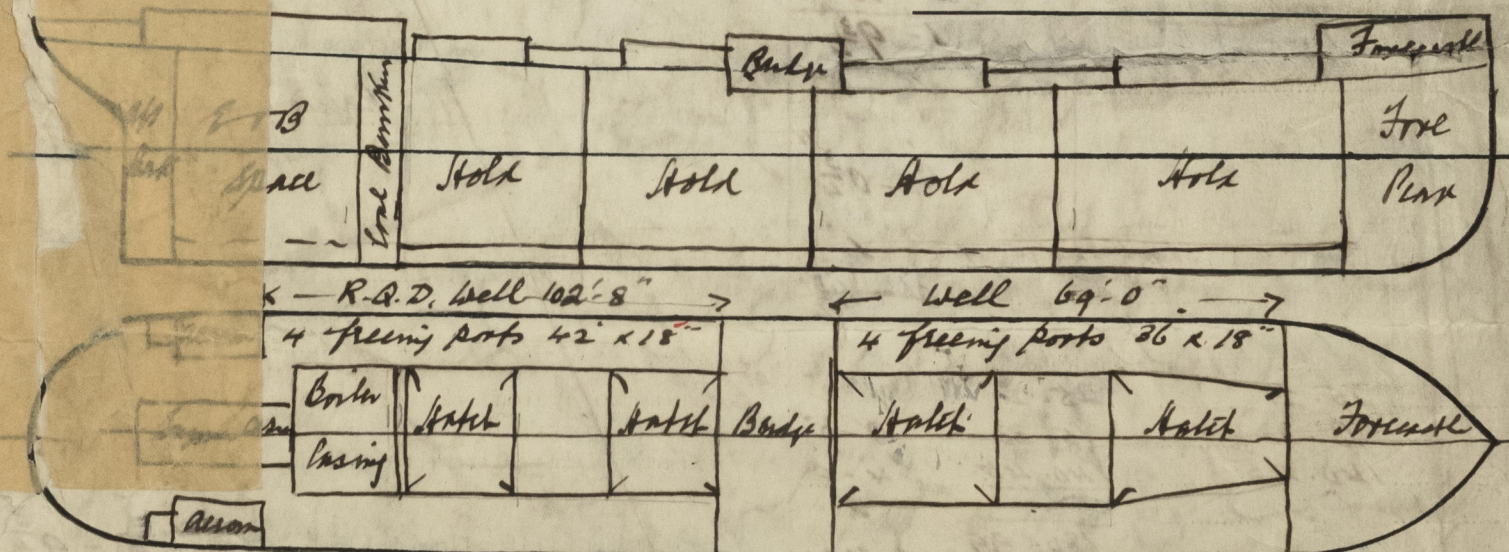 Bridge Forecastle
Fore
Peak
Aft
Peak
E & B
Space
Coal Bunker
Hold Hold Hold Hold
R.Q.D. Well 102'-8" Well 69'-0"
4 freeing ports 42" x 18" 4 freeing ports 36 x 18"
Boiler
Casing
Hatch Hatch Bridge Hatch Hatch Forecastle